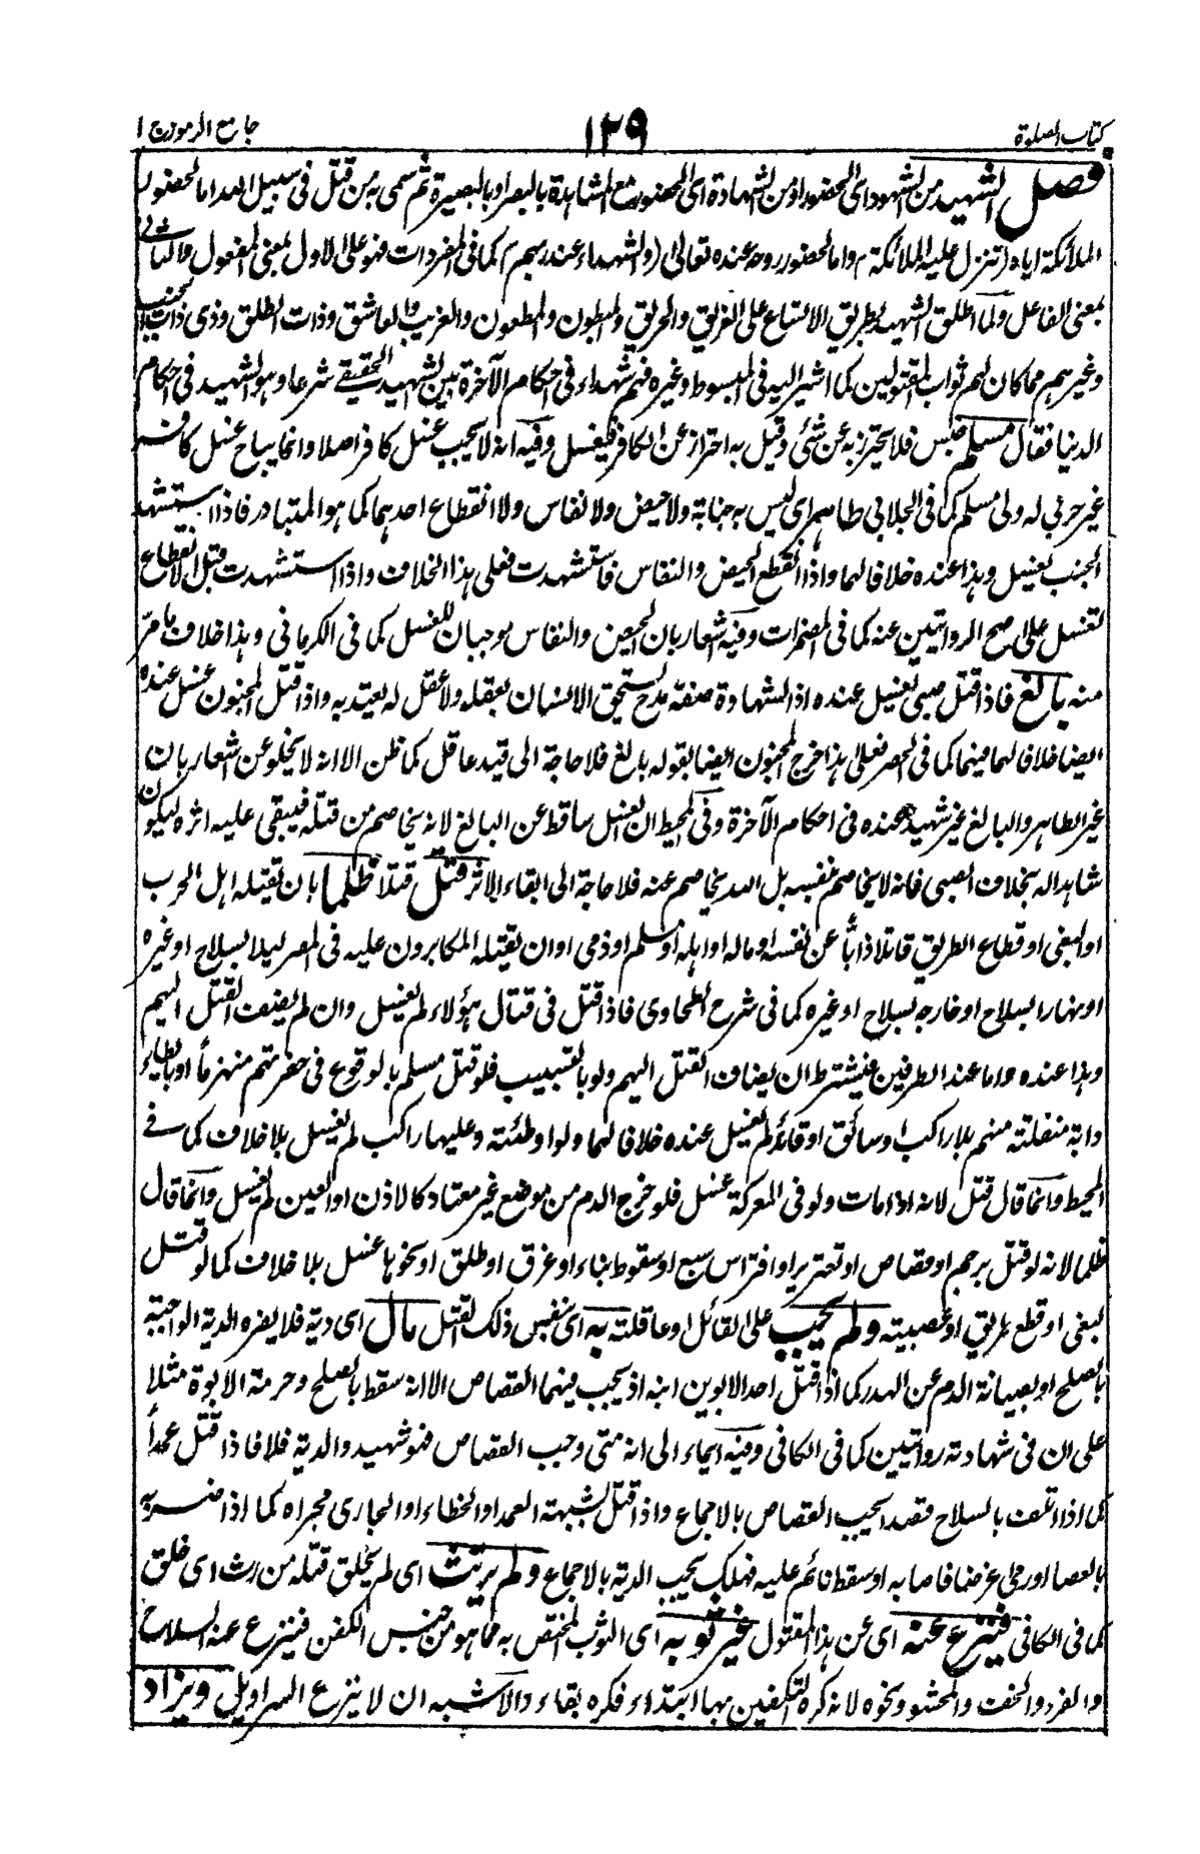 كتاب الصلوة ١٢٩ جامع الرموز ج ١
فصل الشهيد من الشهود اى الحضور او من الشهادة اى الحضور مع المشاهدة بالبصر او بالبصيرة ثم سمى به من قتل فى سبيل الله اما لحضور
الملائكة اياه (تنزل عليه الملائكة) واما لحضور روحه عنده تعالى (والشهداء عند ربهم) كما فى المفردات فهو على الاول بمعنى المفعول والثانى
بمعنى الفاعل ولما اطلق الشهيد بطريق الاتساع على الغريق والحريق والمبطون والمطعون والغريب والعاشق وذات الطلق وذى ذات الجنب
وغيرهم مما كان لهم ثواب المقتولين كما اشير اليه فى المبسوط وغيره فهم شهداء فى احكام الآخرة بين الشهيد الحقيقى شرعا وهو الشهيد فى احكام
الدنيا فقال مسلم جنس فلا يحترز به عن شئ وقيل به احتراز عن الكافر فيغسل وفيه انه لا يجب غسل كافر اصلا وانما يباح غسل كافر
غير حربى له ولى مسلم كما فى الجلابى طاهر اى ليس به جنابة ولا حيض ولا نفاس ولا انقطاع احدهما كما هو المتبادر فاذا استشهد
الجنب يغسل وهذا عنده خلافا لهما واذا انقطع الحيض والنفاس فاستشهدت فعلى هذا الخلاف واذا استشهدت قبل الانقطاع
تغسل على اصح الروايتين عنه كما فى المضمرات وفيه اشعار بان الحيض والنفاس موجبان للغسل كما فى الكرمانى وهذا خلاف ما مرّ
منه بالغ فاذا قتل صبى يغسل عنده اذ الشهادة صفة مدح يستحق الانسان بعقله ولا عقل له يعتد به واذا قتل المجنون غسل عنده
ايضا خلافا لهما فيهما كما فى الحصر فعلى هذا خرج المجنون ايضا بقوله بالغ فلا حاجة الى قيد عاقل كما ظن الا انه لا يخلو عن اشعار بان
غير الطاهر والبالغ غير شهيد عنده فى احكام الآخرة وفى المحيط ان الغسل ساقط عن البالغ لانه يخاصم من قتله فيبقى عليه اثره ليكون
شاهدا له بخلاف الصبى فانه لا يخاصم بنفسه بل الله يخاصم عنه فلا حاجة الى ابقاء الاثر قتل قتلا ظلما بان يقتله اهل الحرب
او البغى او قطاع الطريق قاتلا ذابّا عن نفسه او ماله او اهله او مسلم او ذمى او ان يقتله المكابرون عليه فى المصر ليلا بسلاح او غيره
او نهارا بسلاح او خارجه بسلاح او غيره كما فى شرح الطحاوى فاذا قتل فى قتال هؤلاء لم يغسل وان لم يضف القتل اليهم
وهذا عنده واما عند الطرفين فيشترط ان يضاف القتل اليهم ولو بالتسبيب فلو قتل مسلم بالوقوع فى حفرتهم منهزماً او بايطاء
دابة منفلتة منهم بلا راكب او سائق او قائد لم يغسل عنده خلافا لهما ولو اوطئته وعليها راكب لم يغسل بلا خلاف كما فى
المحيط وانما قال قتل لانه اذا مات ولو فى المعركة غسل فلو خرج الدم من موضع غير معتاد كالاذن او العين لم يغسل وانما قال
ظلما لانه لو قتل برجم او قصاص او تعزير او افتراس سبع او سقوط بناء او غرق او طلق او نحوها غسل بلا خلاف كما لو قتل
لبغى او قطع طريق او عصبية ولم يجب على القاتل او عاقلته به اى بنفس ذلك القتل مال اى دية فلا يضره الدية الواجبة
بالصلح او بصيانة الدم عن الهدر كما اذا قتل احد الابوين ابنه اذ يجب فيهما القصاص الا انه سقط بالصلح وحرمة الابوة مثلا
على ان فى شهادته روايتين كما فى الكافى وفيه ايماء الى انه متى وجب القصاص فهو شهيد والدية فلا فاذا قتل عمداً
كما اذا تلف بالسلاح قصدا يجب القصاص بالاجماع واذا قتل بشبهة العمد او الخطاء او الجارى مجراه كما اذا ضربه
بالعصا او رمى غرضا فاصابه او سقط نائم عليه فهلك يجب الدية بالاجماع ولم يرتث اى لم يخلق قتله من رث اى خلق
كما فى الكافى فينزع عنه اى عن هذا المقتول غير ثوبه اى الثوب المختص به مما هو من جنس الكفن فينزع عنه السلاح
والفرو والخف والحشو ونحوه لانه كره التكفين بها ابتداء فكره بقاء والاشبه ان لا ينزع السراويل ويزاد